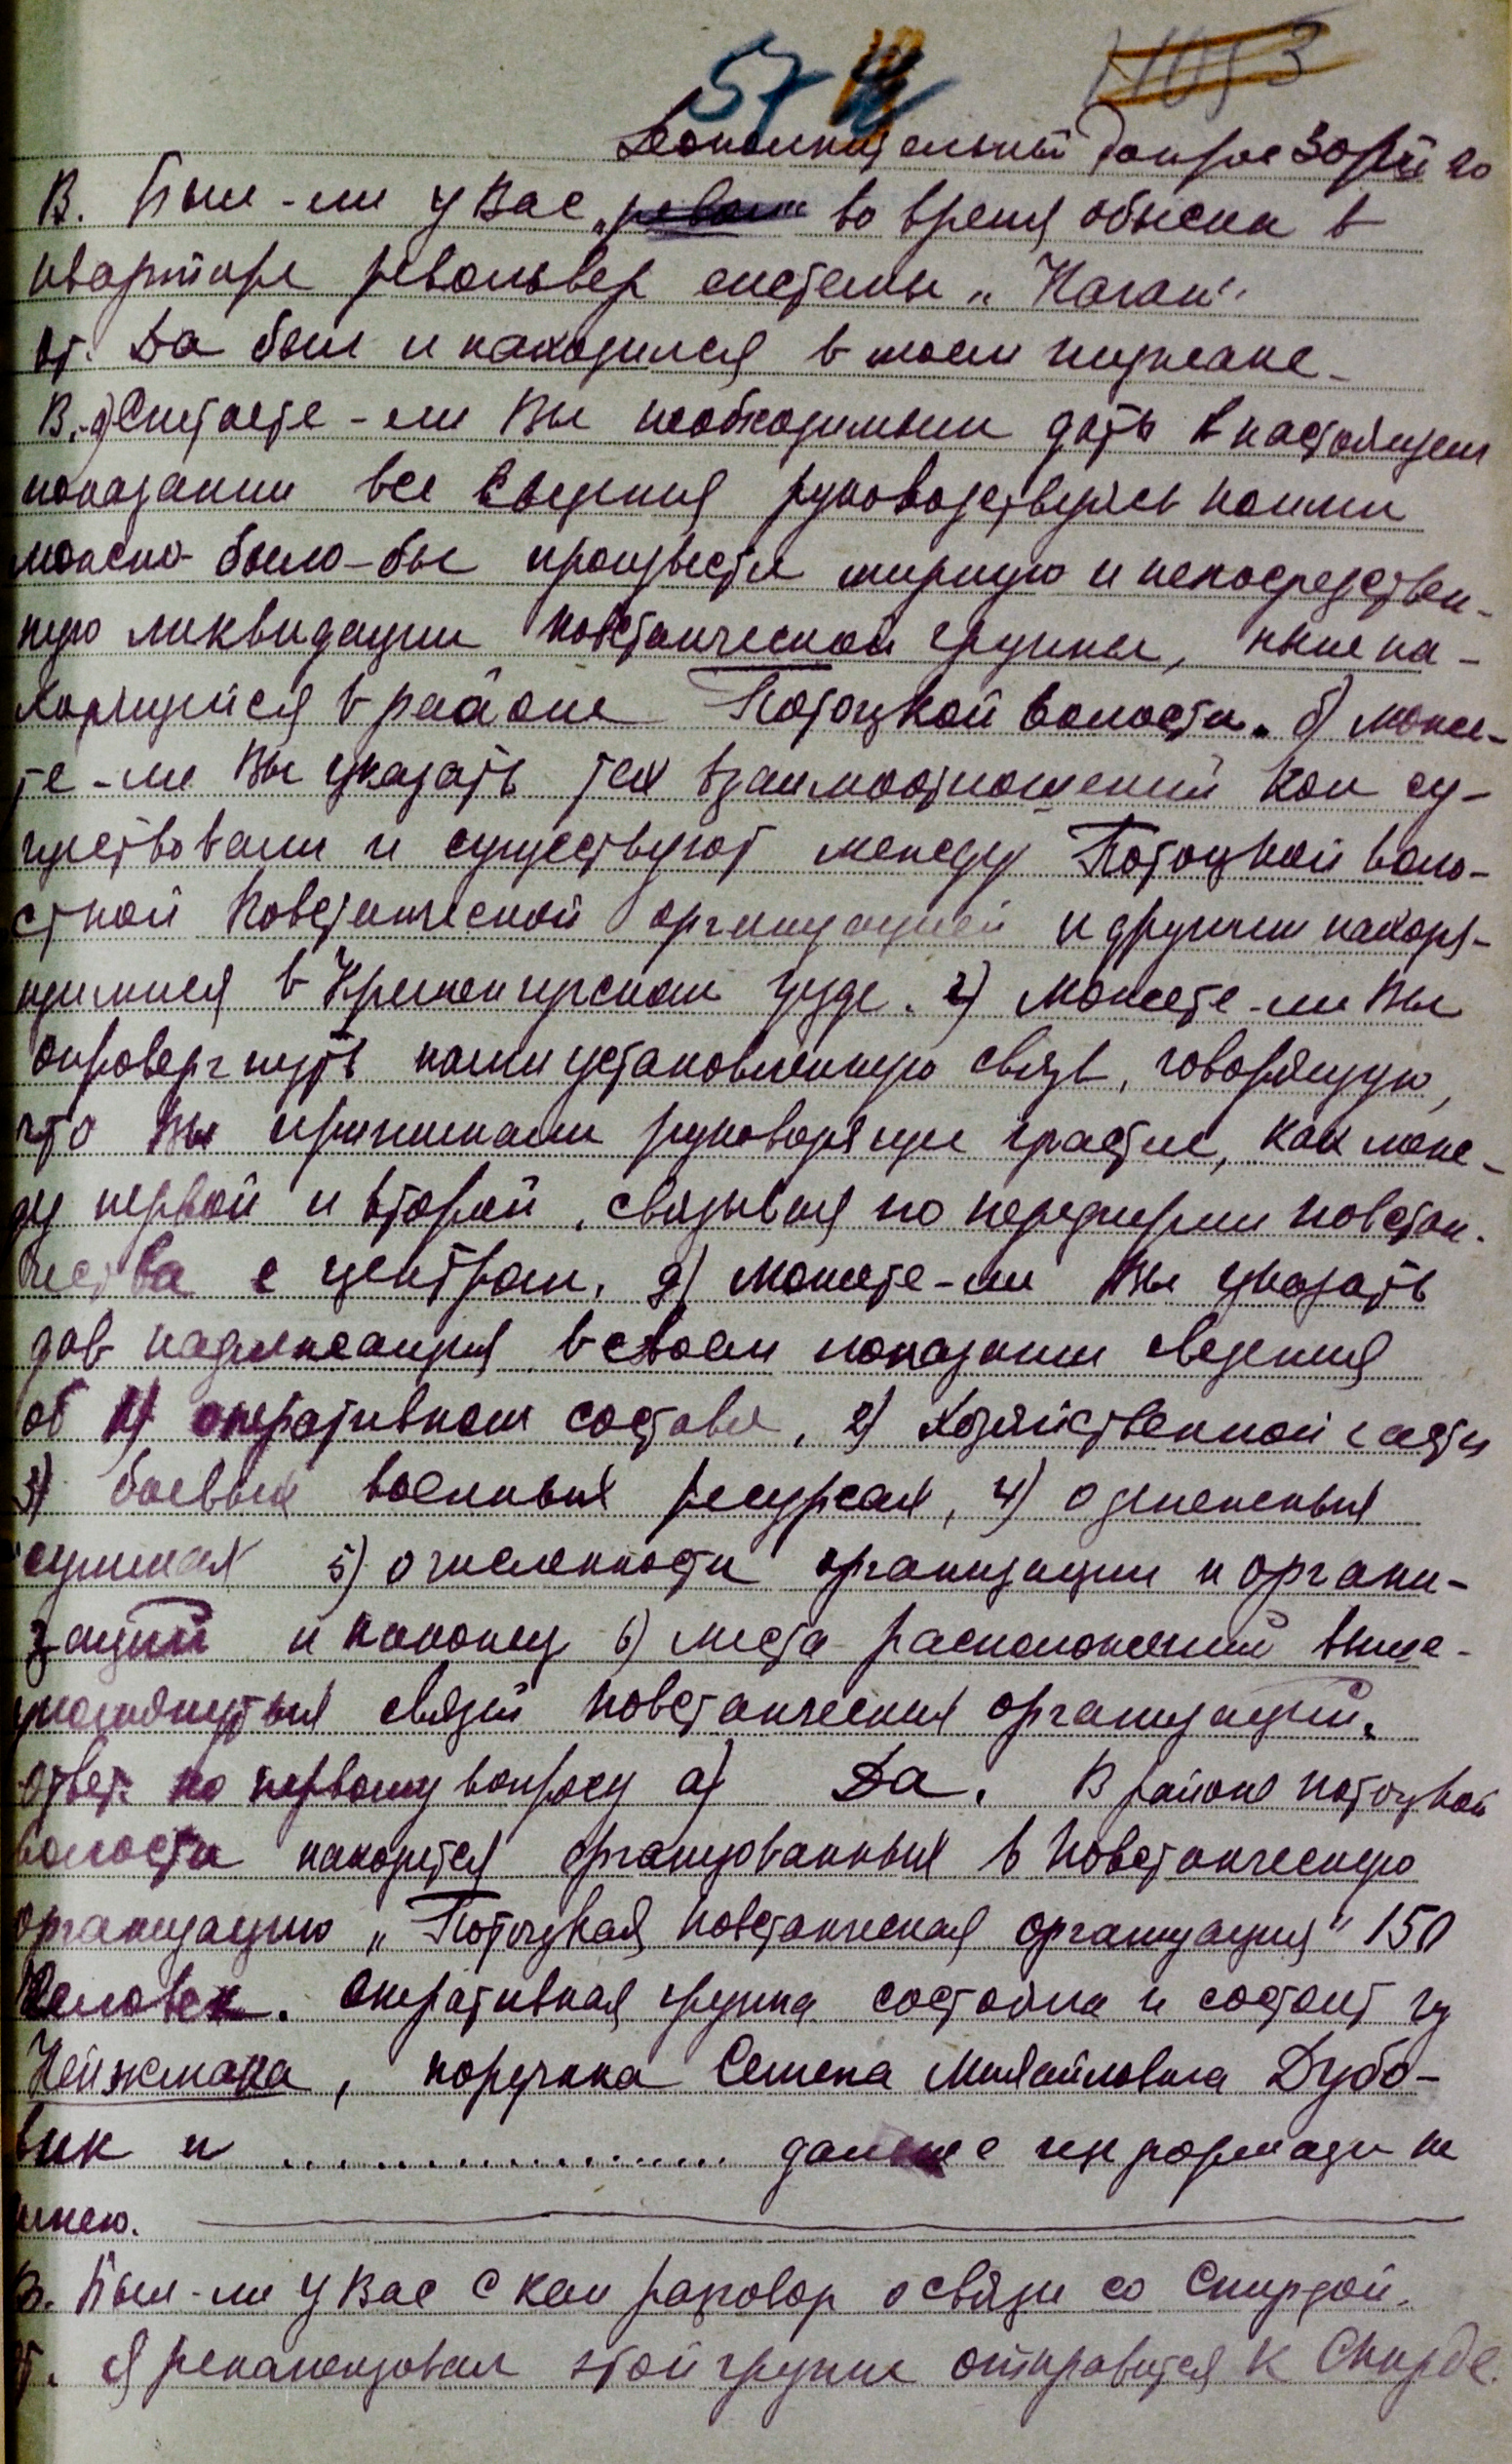 57
Дополнительный допрос Зорина
В. Был-ли у Вас во время обыска в
квартире револьвер системы „Наган".
От. Да был и находился в моем пиджаке.
В. а) Считаете-ли Вы необходимым дать в настоящем
показании все сведения руководствуясь коими
можно было-бы произвести мирную и непосредствен-
ную ликвидации повстанческой группы, ныне на-
ходящийся в районе Потоцкой волости. б) може-
те-ли Вы указать тех взаимоотношений кои су-
ществовали и существуют между Потоцкой воло-
стной повстанческой организацией и другими находя-
щимися в Кременчугском уезде. г) Можете-ли Вы
опровергнуть нами установленную связь, говорящую,
что Вы принимали руководящие участие, как меж-
ду первой и второй, связывая по периферии повстан-
чества с центром. д) Можете-ли Вы указать
дав надлежащия в своем показании сведения
об 1) оперативном составе, 2) Хозяйственной части
3) боевых военных ресурсах, 4) о денежных
суммах 5) о численности организации и органи-
заций и наконец 6) места расположений выше-
упомянутых связей повстанческих организаций.
Ответ. по первому вопросу а) Да. В районе Потоцкой
волости находится организованных в повстанческую
организацию „Потоцкая повстанческая организация" 150
человек. Оперативная группа состояла и состоит из
Нейжмака, поручика Семена Михайловича Дубо-
вик и .................... дальше информаци не
имею.
В. Был-ли у Вас с кем разговор о связи со Скирдой.
От. Я рекомендовал этой группе отправится к Скирде.